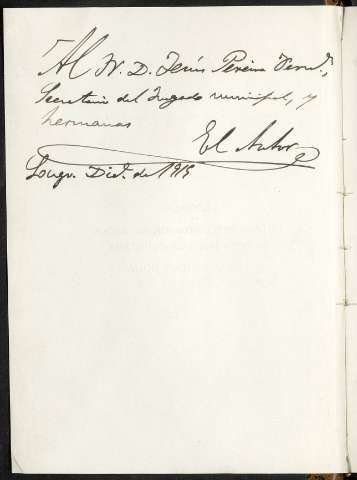 Al Sr. D. Jesús Pereira Fernd.,
Secretario del Juzgado municipal, y
hermanas
El Autor
Lugo. Dicº. de 1915